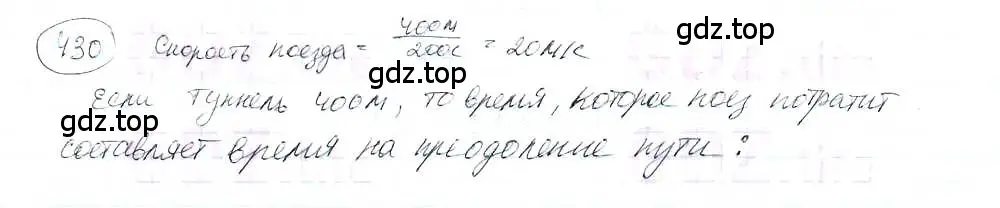 430 Скорость поезда = 400м / 200с = 20м/с
gdz.top gdz.top
gdz.top
Если туннель 400м, то время, которое поез потратит
gdz.top gdz.top
составляет время на преодоление пути:
gdz.top